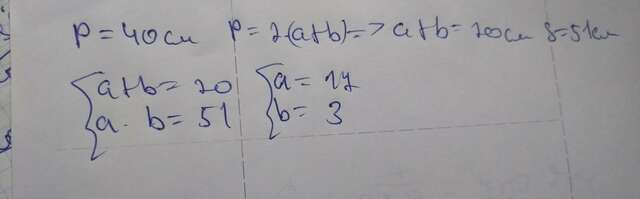 P = 40см P = 2(a+b) => a+b = 20см S = 51см
{a+b = 20 {a = 17
{a · b = 51 {b = 3